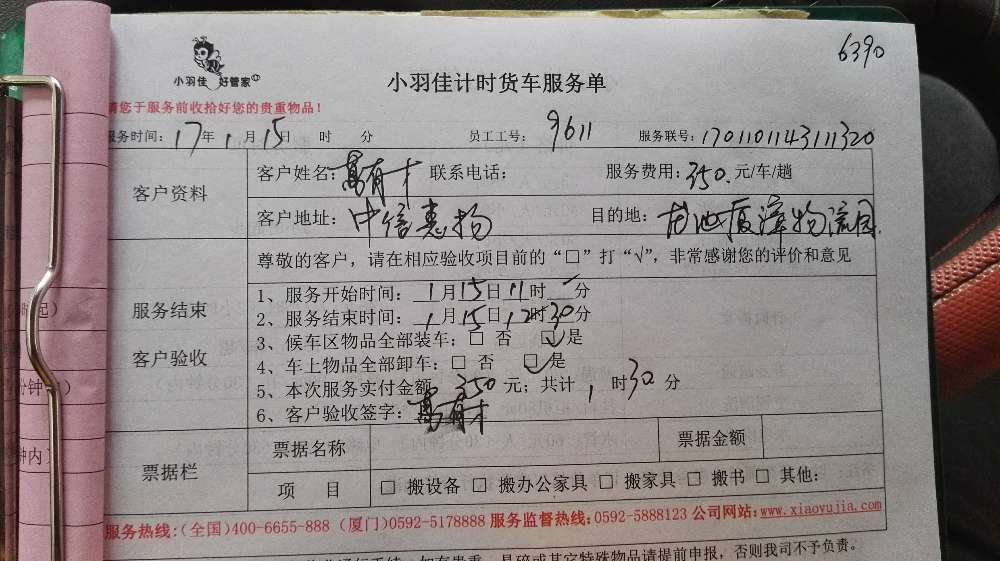 6390
小羽佳 好管家
小羽佳计时货车服务单
请您于服务前收拾好您的贵重物品！
服务时间：17年1月15日 时 分 员工工号：9611 服务联号：1701101143111320
客户资料
客户姓名：高有才 联系电话： 服务费用：350.元/车/趟
客户地址：中信惠扬 目的地：龙池厦漳物流园
尊敬的客户，请在相应验收项目前的“□”打“√”，非常感谢您的评价和意见
服务结束
客户验收
1、服务开始时间：1月15日11时 分
2、服务结束时间：1月15日12时30分
3、候车区物品全部装车：□ 否 □是
4、车上物品全部卸车：□ 否 □是
5、本次服务实付金额 350 元；共计 1 时30分
6、客户验收签字：高有才
票据栏
票据名称 票据金额
项 目 □ 搬设备 □ 搬办公家具 □ 搬家具 □ 搬书 □ 其他：
服务热线：(全国)400-6655-888 (厦门)0592-5178888 服务监督热线：0592-5888123 公司网站：www.xiaoyujia.com
易碎或其它特殊物品请提前申报，否则我司不予负责。